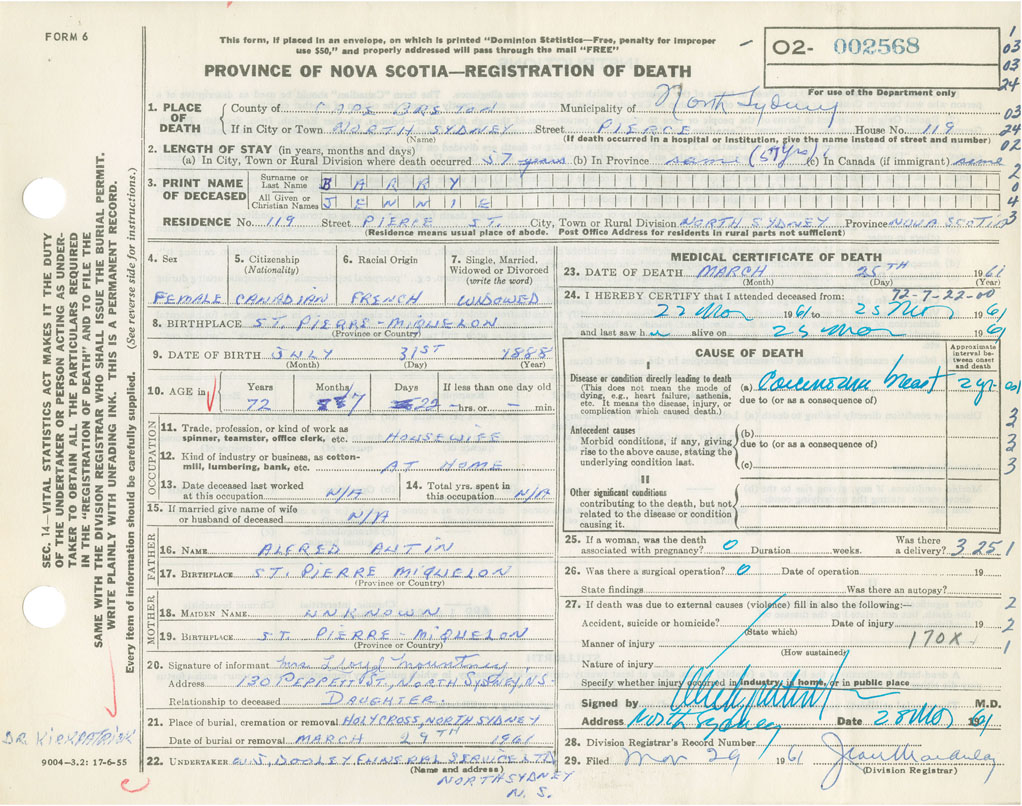 FORM 6
This form, if placed in an envelope, on which is printed "Dominion Statistics—Free, penalty for improper
use $50," and properly addressed will pass through the mail "FREE"
PROVINCE OF NOVA SCOTIA—REGISTRATION OF DEATH
02- 002568
For use of the Department only
1
03
03
24
03
24
02
2
0
4
3
1. PLACE OF DEATH
County of CAPE BRETON Municipality of North Sydney
If in City or Town NORTH SYDNEY Street PIERCE House No. 119
(Name) (If death occurred in a hospital or institution, give the name instead of street and number)
2. LENGTH OF STAY (in years, months and days)
(a) In City, Town or Rural Division where death occurred 57 years (b) In Province same (57 yrs) (c) In Canada (if immigrant) same
3. PRINT NAME OF DECEASED
Surname or Last Name BARRY
All Given or Christian Names JENNIE
RESIDENCE No. 119 Street PIERCE ST. City, Town or Rural Division NORTH SYDNEY Province NOVA SCOTIA
(Residence means usual place of abode. Post Office Address for residents in rural parts not sufficient)
4. Sex
FEMALE
5. Citizenship (Nationality)
CANADIAN
6. Racial Origin
FRENCH
7. Single, Married, Widowed or Divorced (write the word)
WIDOWED
8. BIRTHPLACE ST. PIERRE-MIQUELON
(Province or Country)
9. DATE OF BIRTH JULY 31ST 1888
(Month) (Day) (Year)
10. AGE in
Years Months Days If less than one day old
72 7 22 – hrs. or – min.
OCCUPATION
11. Trade, profession, or kind of work as
spinner, teamster, office clerk, etc. HOUSEWIFE
12. Kind of industry or business, as cotton-
mill, lumbering, bank, etc. AT HOME
13. Date deceased last worked
at this occupation N/A
14. Total yrs. spent in
this occupation N/A
15. If married give name of wife
or husband of deceased N/A
FATHER
16. NAME ALFRED AUTIN
17. BIRTHPLACE ST. PIERRE MIQUELON
(Province or Country)
MOTHER
18. MAIDEN NAME UNKNOWN
19. BIRTHPLACE ST. PIERRE-MIQUELON
(Province or Country)
20. Signature of informant Mrs. Lloyd Mountney
Address 130 PEPPETT ST., NORTH SYDNEY, NS.
Relationship to deceased DAUGHTER.
21. Place of burial, cremation or removal HOLY CROSS, NORTH SYDNEY
Date of burial or removal MARCH 29TH 1961
22. UNDERTAKER W.J. DOOLEY FUNERAL SERVICE LTD
(Name and address) NORTH SYDNEY
N. S.
MEDICAL CERTIFICATE OF DEATH
23. DATE OF DEATH MARCH 25TH 1961
(Month) (Day) (Year)
24. I HEREBY CERTIFY that I attended deceased from: 72-7-22-00
22 Mar 1961 to 25 Mar 1961
and last saw h er alive on 25 Mar 1961
CAUSE OF DEATH
Approximate interval between onset and death
I
Disease or condition directly leading to death
(This does not mean the mode of
dying, e.g., heart failure, asthenia,
etc. It means the disease, injury, or
complication which caused death.)
(a) Carcinoma breast 2 yr.
due to (or as a consequence of)
Antecedent causes
Morbid conditions, if any, giving
rise to the above cause, stating the
underlying condition last.
(b)
due to (or as a consequence of)
(c)
II
Other significant conditions
contributing to the death, but not
related to the disease or condition
causing it.
3
2
3
3
25. If a woman, was the death
associated with pregnancy? 0 Duration weeks. Was there
a delivery? 3251
26. Was there a surgical operation? 0 Date of operation 19
State findings Was there an autopsy?
27. If death was due to external causes (violence) fill in also the following:—
Accident, suicide or homicide? (State which) Date of injury 19
Manner of injury 170X
(How sustained)
Nature of injury
Specify whether injury occurred in industry, in home, or in public place
2
2
1
Signed by M.D.
Address North Sydney Date 28 Mar 1961
28. Division Registrar's Record Number
29. Filed Mar 29 1961
(Division Registrar)
SEC. 14—VITAL STATISTICS ACT MAKES IT THE DUTY
OF THE UNDERTAKER OR PERSON ACTING AS UNDER-
TAKER TO OBTAIN ALL THE PARTICULARS REQUIRED
IN THE "REGISTRATION OF DEATH" AND TO FILE THE
SAME WITH THE DIVISION REGISTRAR WHO SHALL ISSUE THE BURIAL PERMIT.
WRITE PLAINLY WITH UNFADING INK. THIS IS A PERMANENT RECORD.
Every item of information should be carefully supplied. (See reverse side for instructions.)
DR. KIRKPATRICK
9004—3.2: 17-6-55